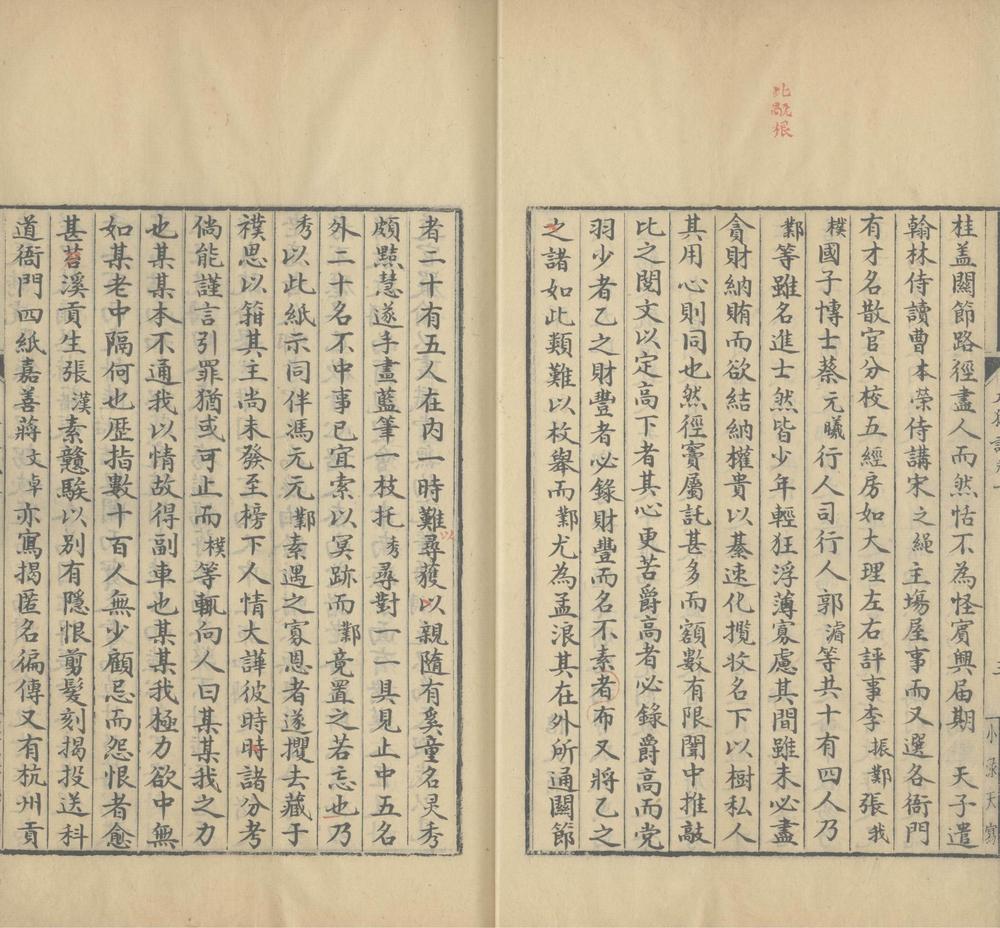 桂盖關節路徑盡人而然恬不為怪賓興届期　天子遣
翰林侍讀曹本榮侍講宋之繩主場屋事而又選各衙門
有才名散官分校五經房如大理左右評事李振鄴張我
樸國子博士蔡元曦行人司行人郭濬等共十有四人乃
鄴等雖名進士然皆少年輕狂浮薄寡慮其間雖未必盡
貪財納賄而欲結納權貴以綦速化攬收名下以樹私人
其用心則同也然徑竇屬託甚多而額數有限闈中推敲
比之閱文以定高下者其心更苦爵高者必錄爵高而党
羽少者乙之財豐者必錄財豐而名不素者布又將乙之
之諸如此類難以枚舉而鄴尤為孟浪其在外所通關節
者二十有五人在內一時難尋獲以親隨有奚童名灵秀
頗黠慧遂手畫藍筆一枝托秀尋對二一具見止中五名
外二十名不中事已宜索以冥跡而鄴竟置之若忘也乃
秀以此紙示同伴馮元元鄴素遇之寡恩者遂攫去藏于
襆思以箝其主尚未發至榜下人情大譁彼時時諸分考
倘能謹言引罪猶或可止而樸等輒向人曰某某我之力
也某某本不通我以情故得副車也某某我極力欲中無
如某老中隔何也歴指數十百人無少顧忌而怨恨者愈
甚苕溪貢生張漢素戇騃以别有隱恨剪髮刻揭投送科
道衙門四紙嘉善蔣文卓亦寫揭匿名徧傳又有杭州貢
比敲恨